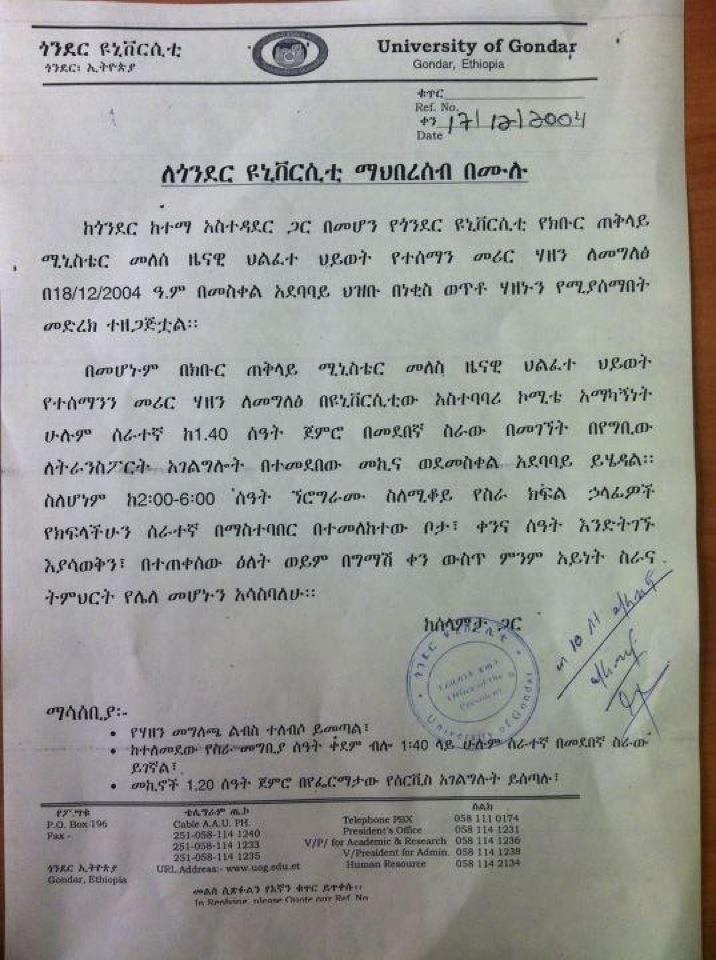 ጎንደር ዩኒቨርሲቲ
ጎንደር፡ ኢትዮጵያ
University of Gondar
Gondar, Ethiopia
ቁጥር
Ref. No.
ቀን
Date 17/12/2004
ለጎንደር ዩኒቨርሲቲ ማህበረሰብ በሙሉ
ከጎንደር ከተማ አስተዳደር ጋር በመሆን የጎንደር ዩኒቨርሲቲ የክቡር ጠቅላይ
ሚኒስቴር መለሰ ዜናዊ ህልፈተ ህይወት የተሰማን መሪር ሃዘን ለመግለፅ
በ18/12/2004 ዓ.ም በመስቀል አደባባይ ህዝቡ በነቂስ ወጥቶ ሃዘኑን የሚያሰማበት
መድረክ ተዘጋጅቷል፡፡
በመሆኑም በክቡር ጠቅላይ ሚኒስቴር መለስ ዜናዊ ህልፈተ ህይወት
የተሰማንን መሪር ሃዘን ለመግለፅ በዩኒቨርሲቲው አስተባባሪ ኮሚቴ አማካኝነት
ሁሉም ሰራተኛ ከ1.40 ሰዓት ጀምሮ በመደበኛ ስራው በመገኘት በየግቢው
ለትራንስፖርት አገልግሎት በተመደበው መኪና ወደመስቀል አደባባይ ይሄዳል፡፡
ስለሆነም ከ2፡00-6፡00 ሰዓት ፕሮግራሙ ስለሚቆይ የስራ ክፍል ኃላፊዎች
የክፍላችሁን ሰራተኛ በማስተባበር በተመለከተው ቦታ፣ ቀንና ሰዓት እንድትገኙ
እያሳወቅን፣ በተጠቀሰው ዕለት ወይም በግማሽ ቀን ውስጥ ምንም አይነት ስራና
ትምህርት የሌለ መሆኑን አሳስባለሁ፡፡
ከሰላምታ ጋር
ጎንደር ዩኒቨርሲቲ
Office of the President
University of Gondar
ማሳሰቢያ፡-
• የሃዘን መግለጫ ልብስ ተለብሶ ይመጣል፣
• ከተለመደው የስራ መግቢያ ሰዓት ቀደም ብሎ 1፡40 ላይ ሁሉም ሰራተኛ በመደበኛ ስራው
ይገኛል፣
• መኪኖች 1.20 ሰዓት ጀምሮ በየፌርማታው የሰርቪስ አገልግሎት ይሰጣሉ፣
የፖ.ሣ.ቁ
P.O. Box 196
Fax -
ጎንደር ኢትዮጵያ
Gondar, Ethiopia
ቴሌግራም ጤ.ኮ
Cable A.A.U. PH.
251-058-114 1240
251-058-114 1233
251-058-114 1235
URL Address:- www.uog.edu.et
ስልክ
Telephone PBX 058 111 0174
President's Office 058 114 1231
V/P/ for Academic & Research 058 114 1236
V/President for Admin. 058 114 1238
Human Resource 058 114 2134
መልስ ሲጽፉልን የእኛን ቁጥር ይጥቀሱ፡፡
In Replying, please Quote our Ref. No